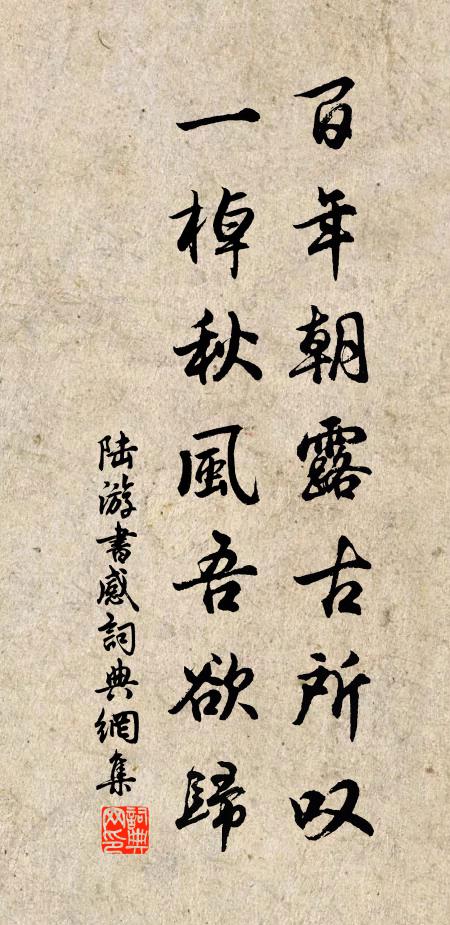 百年朝露古所叹
一棹秋風吾欲歸
陸游書感詞典網集
詞典网印